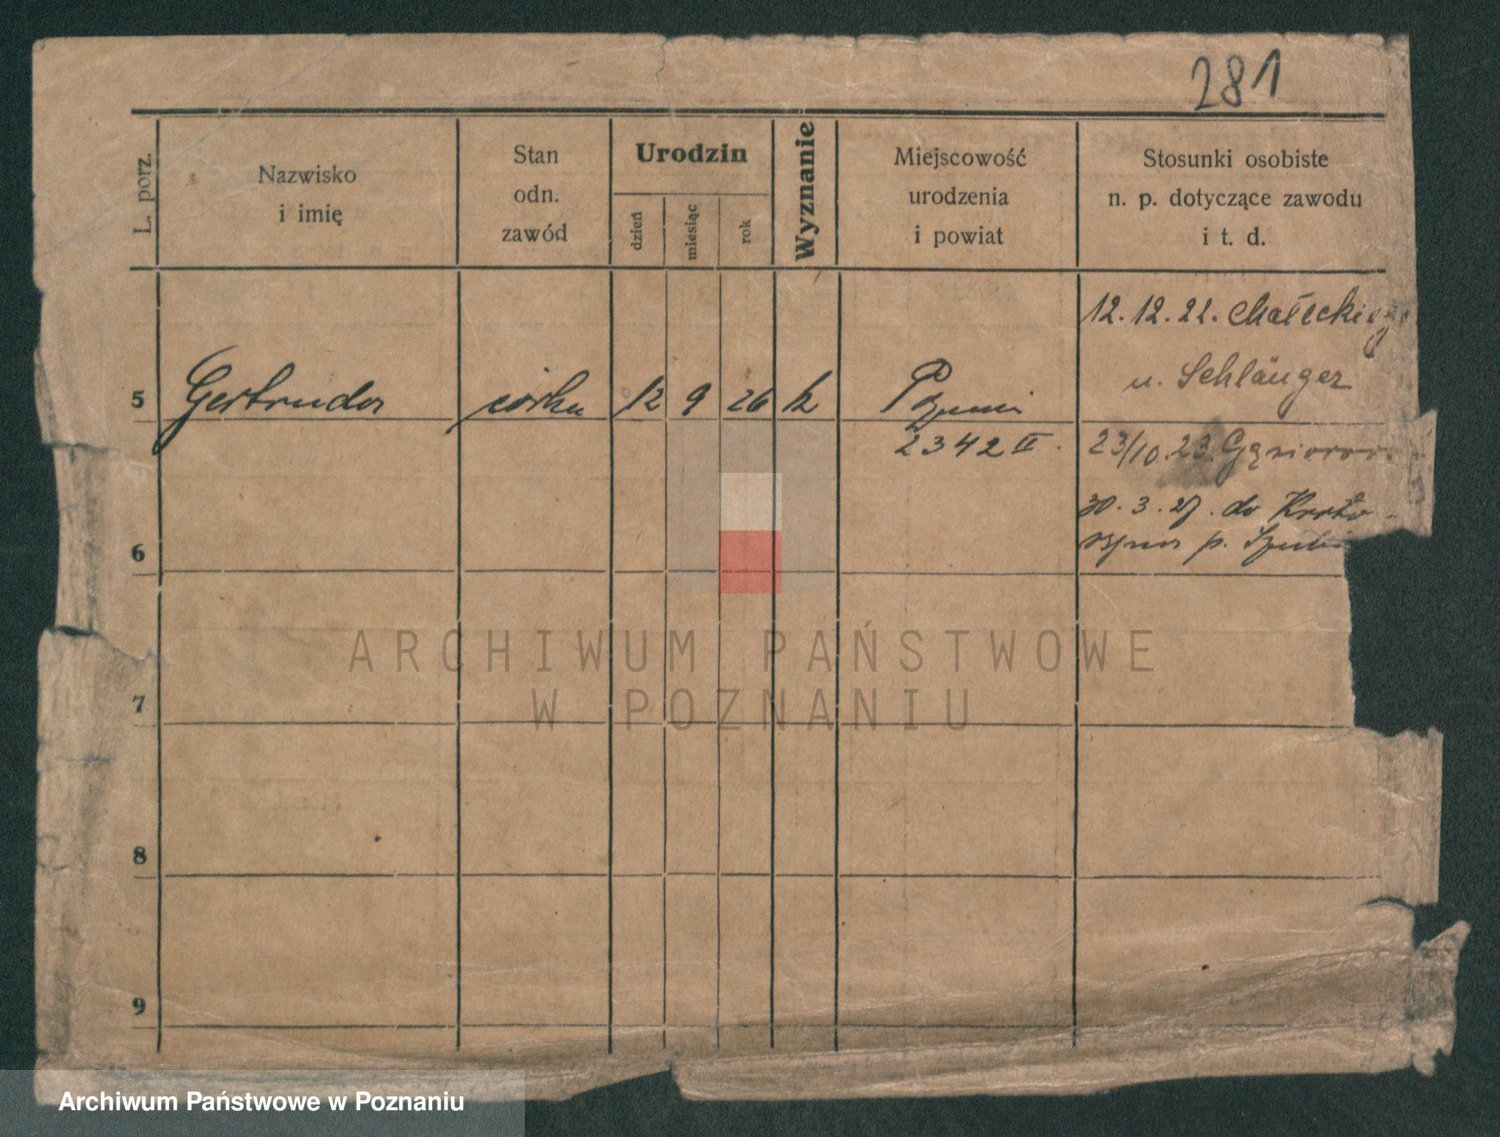 281
L. porz.
Nazwisko
i imię
Stan
odn.
zawód
Urodzin
dzień
miesiąc
rok
Wyznanie
Miejscowość
urodzenia
i powiat
Stosunki osobiste
n. p. dotyczące zawodu
i t. d.
12.12.22. Małeckiego
u. Schlänger
5 Gertruda córka 12 9 26 k
2342 II.
23/10.23.
30.3.27. do
p.
6
7
8
9
ARCHIWUM PAŃSTWOWE
W POZNANIU
Archiwum Państwowe w Poznaniu